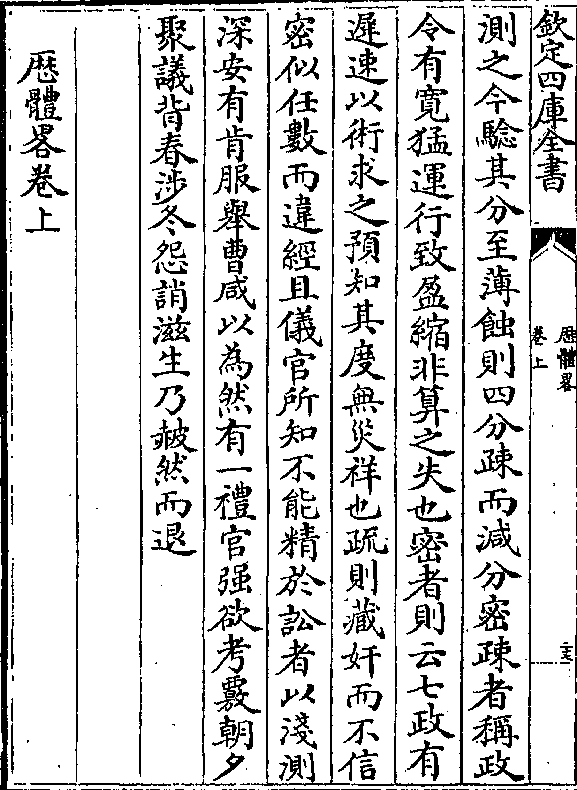 欽定四庫全書
厯體畧
卷上
測之今驗其分至薄蝕則四分疎而減分密疎者稱政
令有寛猛運行致盈縮非算之失也密者則云七政有
遲速以術求之預知其度無災祥也疏則藏奸而不信
密似任數而違經且儀官所知不能精於訟者以淺測
深安有肯服舉曹咸以為然有一禮官强欲考覈朝夕
聚議背春涉冬怨誚滋生乃赧然而退
厯體畧卷上